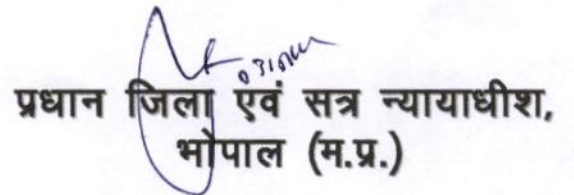 प्रधान जिला एवं सत्र न्यायाधीश,
भोपाल (म.प्र.)